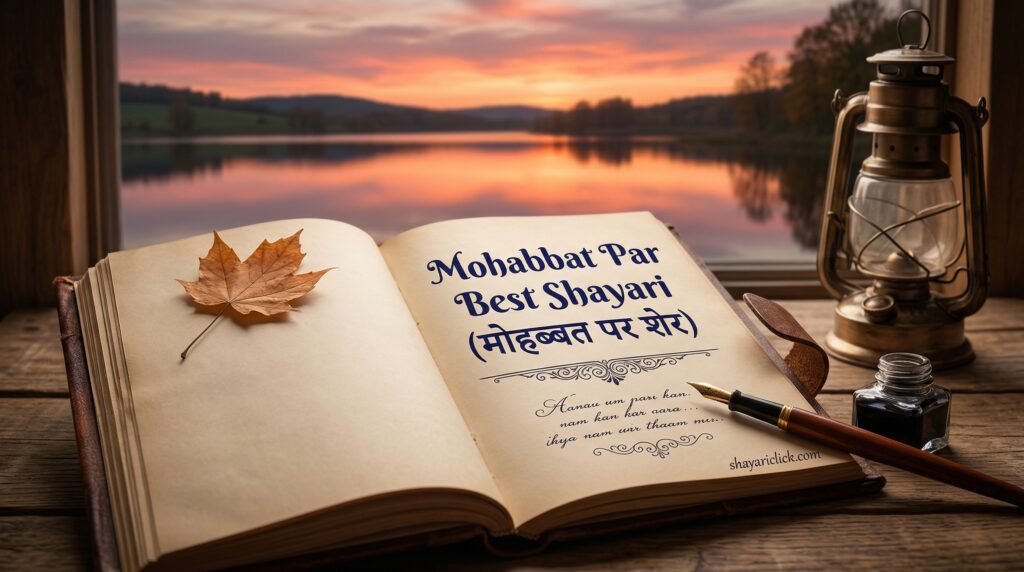 Mohabbat Par
Best Shayari
(मोहब्बत पर शेर)
Aanau um paru kan.
nam kan kar aara ...
ihya nam unr thaam mu...
shayariclick.com